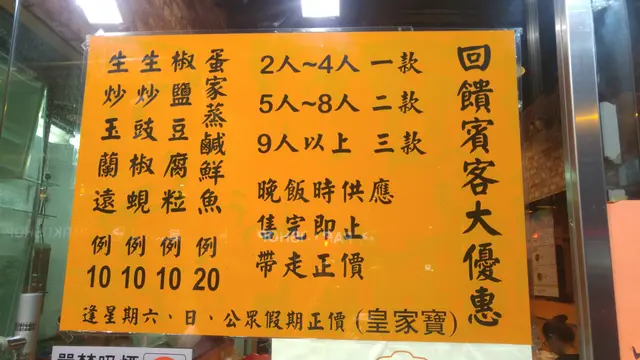 回饋賓客大優惠
2人~4人 一款
5人~8人 二款
9人以上 三款
晚飯時供應
售完即止
帶走正價
蛋家蒸鹹鮮魚 例20
椒鹽豆腐粒 例10
生炒豉椒蜆 例10
生炒玉蘭遠 例10
逢星期六、日、公眾假期正價(皇家寶)